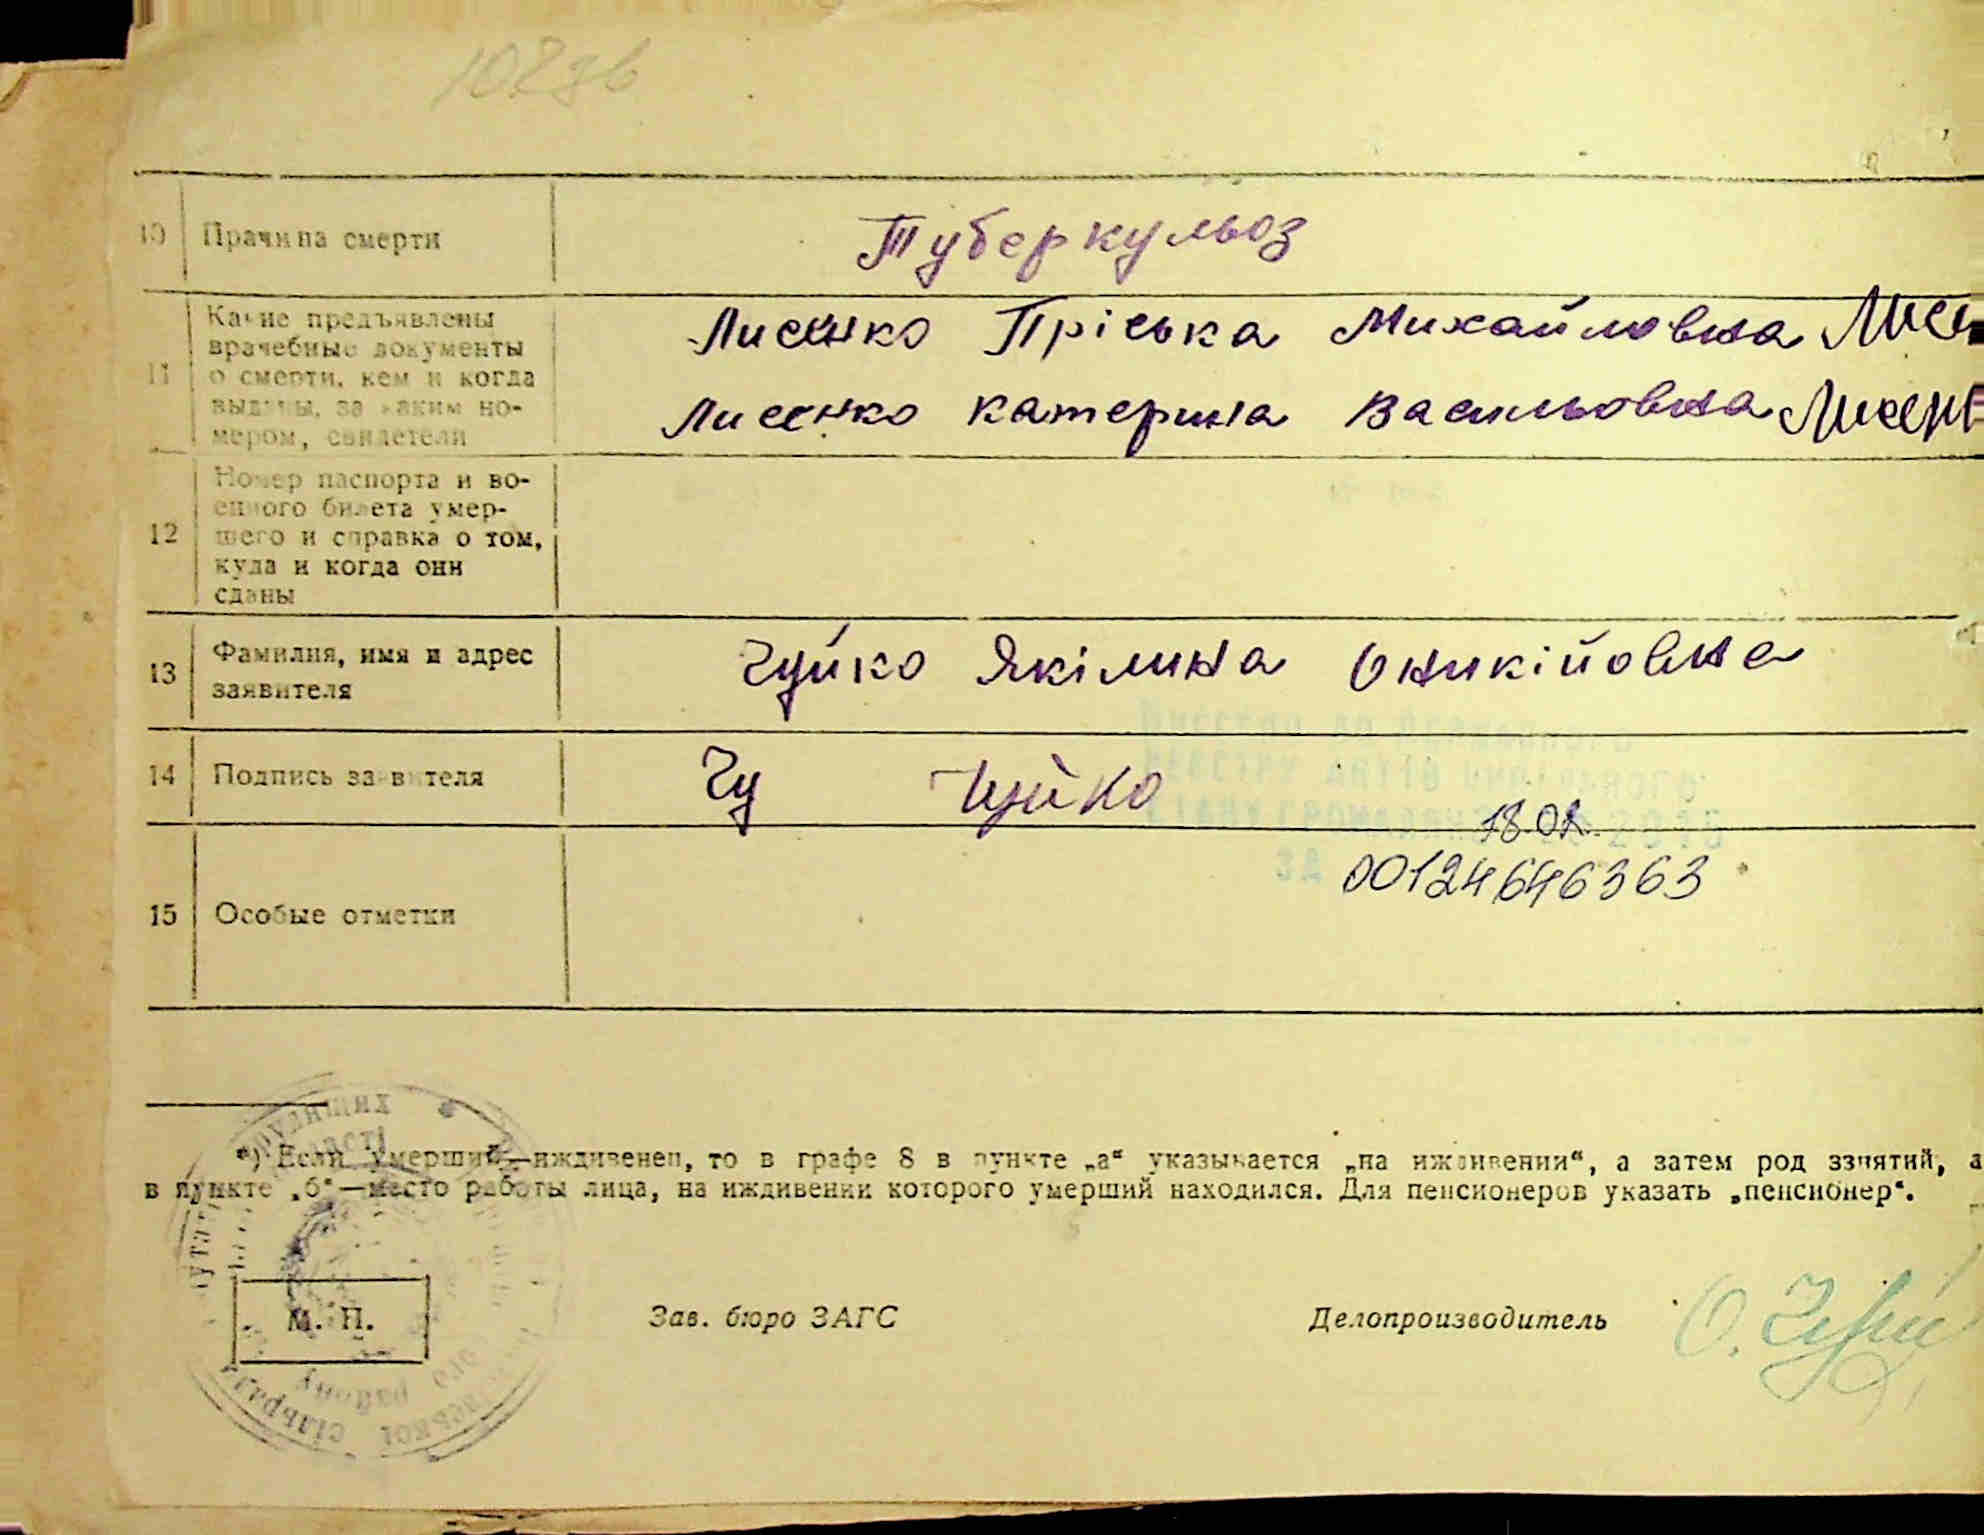 10
Причина смерти
Туберкульоз
11
Какие предъявлены
врачебные документы
о смерти, кем и когда
выданы, за каким но-
мером, свидетели
Лисенко Пріська Михайловна Лисе
Лисенко Катерина Васильовна Лисен
12
Номер паспорта и во-
енного билета умер-
шего и справка о том,
куда и когда они
сданы
13
Фамилия, имя и адрес
заявителя
Чуйко Якілина Оникійовна
14
Подпись заявителя
Чу Чуйко
15
Особые отметки
18.01.
2015
ЗА
00124646363
*) Если умерший—иждивенец, то в графе 8 в пункте „а“ указывается „на иждивении“, а затем род занятий, а
в пункте „б“—место работы лица, на иждивении которого умерший находился. Для пенсионеров указать „пенсионер“.
М. П.
Зав. бюро ЗАГС
Делопроизводитель
трудящих
області
району
сільради